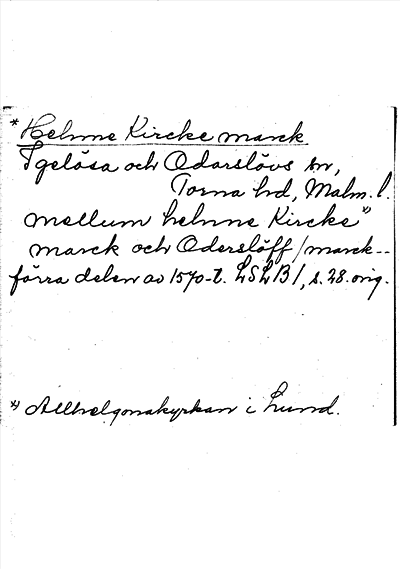 * Helnne Kircke marck
Igelösa och Odarslövs sn,
Torna hd, Malm. l.
mellum helnne Kircke *)
marck och Oderslöff / marck--
förra delen av 1570-t. LSLB 1, s. 28. orig.
*) Allhelgonakyrkan i Lund.